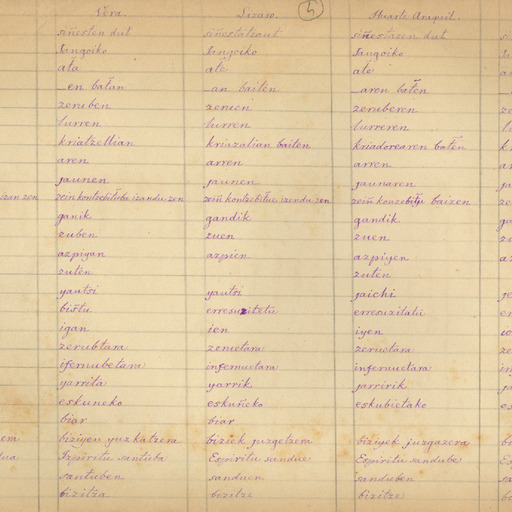 Vera. Lizaso. 4 Huarte Araquil.
siñesten dut siñestatzaut siñestacen dut
Jangoiko Jangoiko Jangoiko
ata ate ate
en batan an baiten aren baten
zeruben zeruen zeruberen
lurren lurren lurreren
kriatzellian kriazalian baiten kriadorearen baten
aren arren arren
jaunen jaunen jaunaren
izandu zen izandu zen baizen
ganik gandik gandik
zuben zuen zuen
azpiyan azpien azpiyen
zuten zuten
yautsi yautsi jaichi
biztu erresuzitetu erresuzitatu
igan ien iyen
zerubtara zeruetara zeruetara
ifernubetara infernuetara infernuetara
yarrita yarrik jarririk
eskuneko eskuñeko eskubietako
biar biar
biziyen yuzkatzera biziek juzgetzera biziyek juzgazera
Izpiritu santuba Espiritu sandue Espiritu sandube
santuben sanduen sanduben
bizitza bizitze bizitze